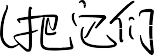 (把它们